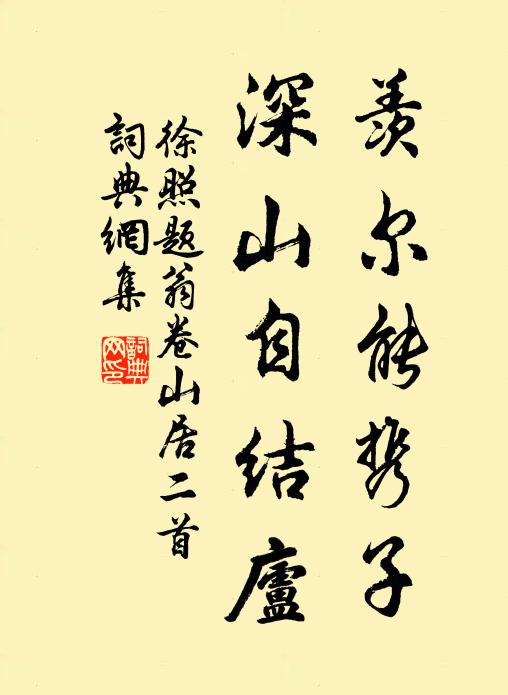 羨尔能携子
深山自结廬
徐照题翁卷山居二首
詞典網集
詞典網印